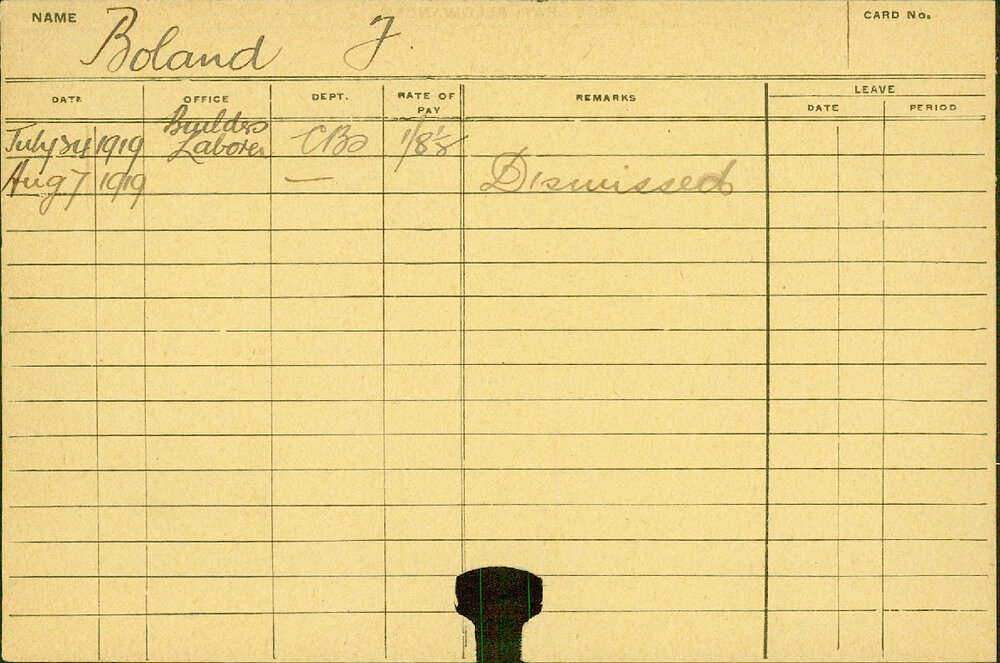 NAME Boland J CARD No.
DATE OFFICE DEPT. RATE OF PAY REMARKS LEAVE
DATE PERIOD
Builders
July 24 1919 Laborer CBs 1/8⅛
Aug 7 1919 — Dismissed